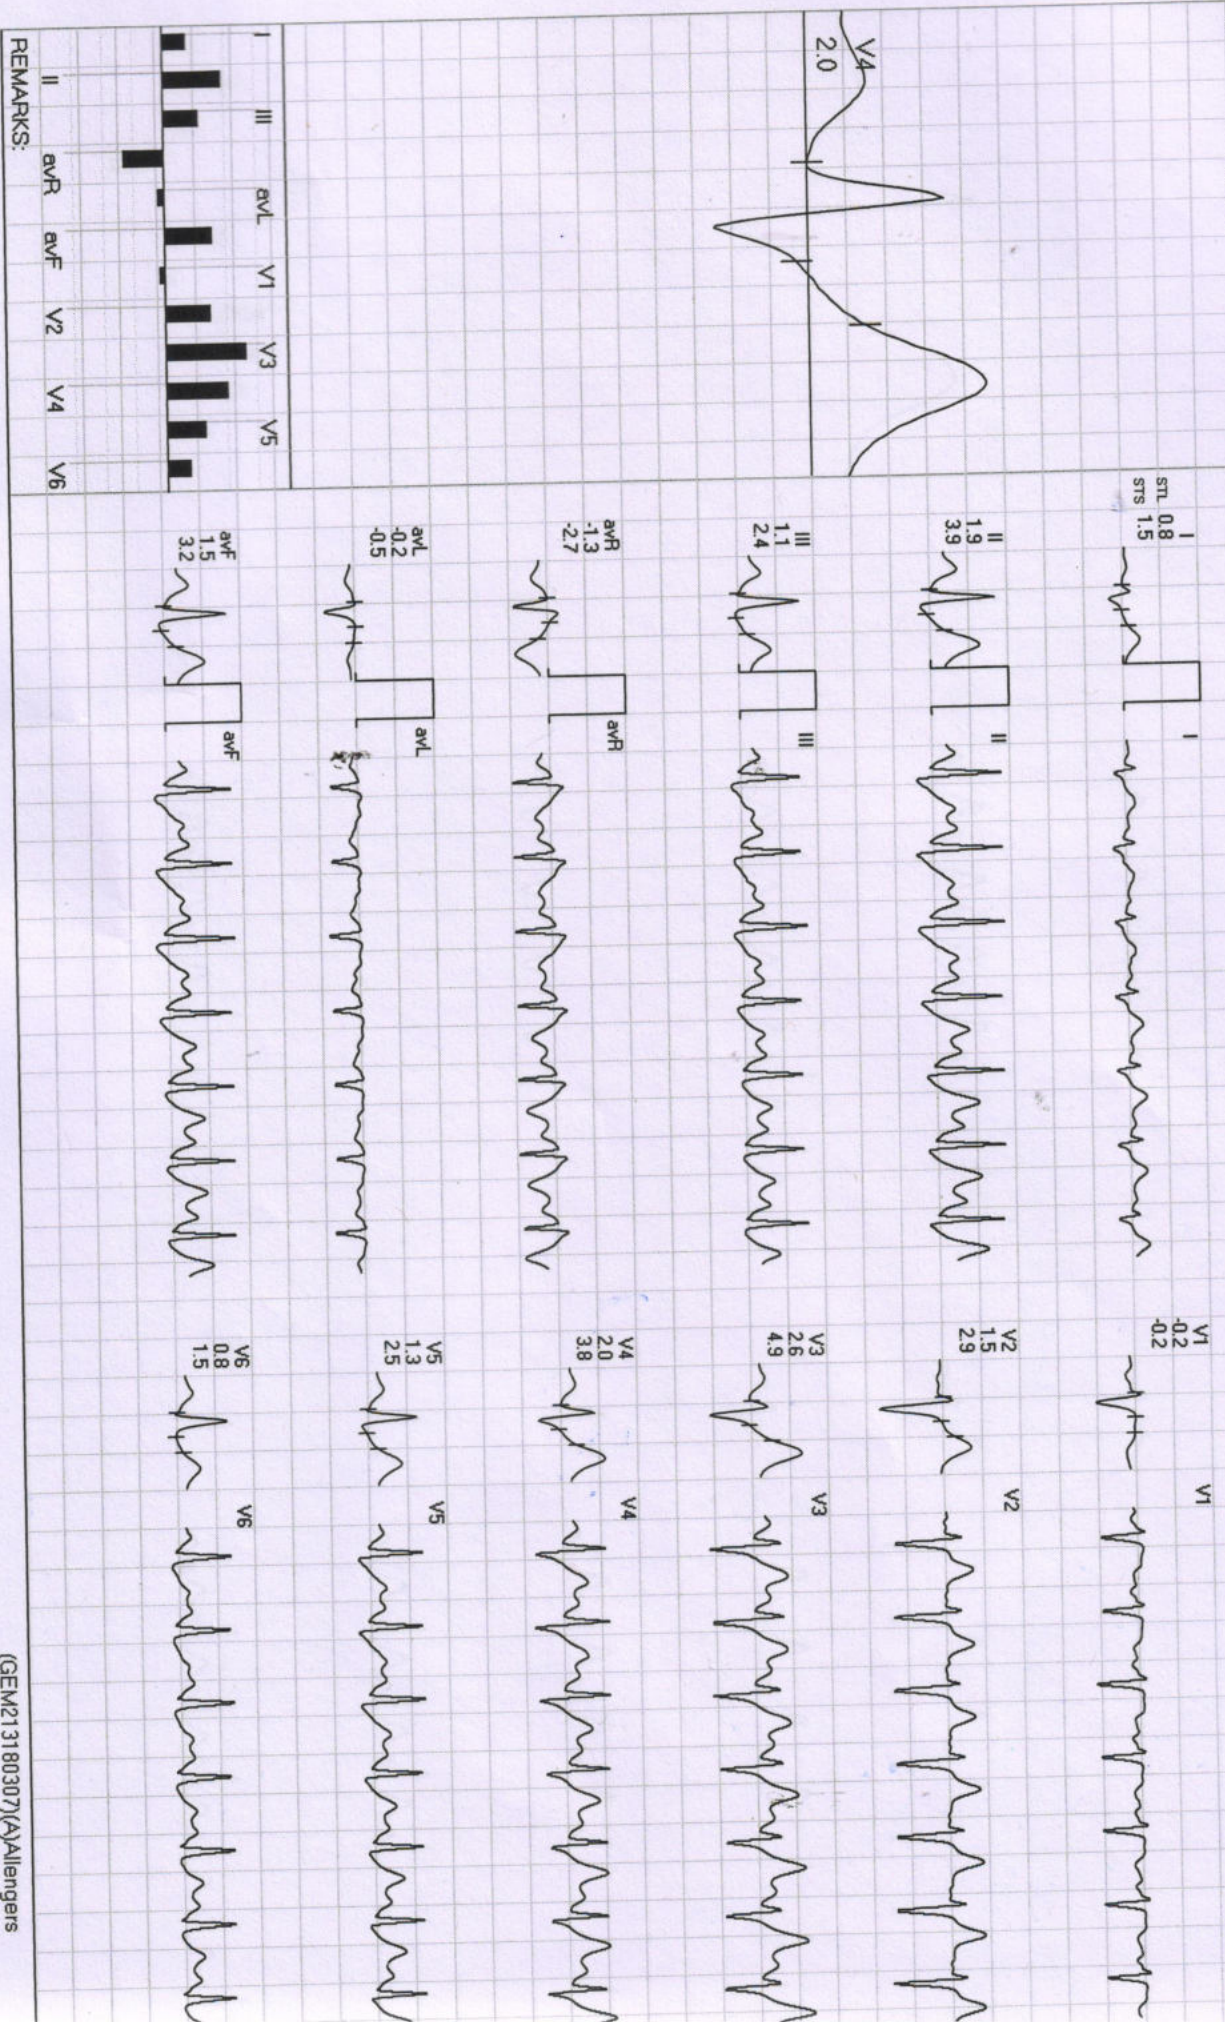 V4
2.0
I III avL V1 V3 V5
II avR avF V2 V4 V6
REMARKS:
I
STL 0.8
STS 1.5
I
II
1.9
3.9
II
III
1.1
2.4
III
avR
-1.3
-2.7
avR
avL
-0.2
-0.5
avL
avF
1.5
3.2
avF
V1
-0.2
-0.2
V1
V2
1.5
2.9
V2
V3
2.6
4.9
V3
V4
2.0
3.8
V4
V5
1.3
2.5
V5
V6
0.8
1.5
V6
(GEM213180307)(A)Allengers